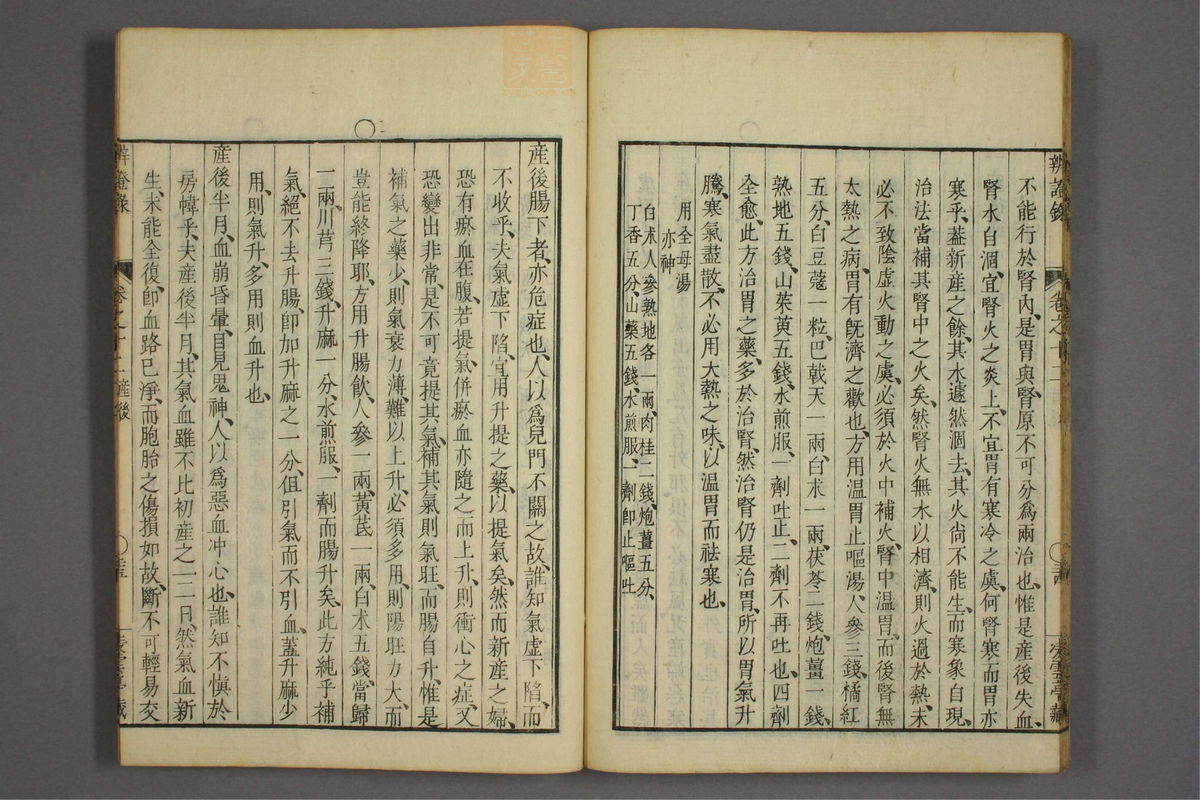 辨證錄 卷之十二
不能行於腎內、是胃與腎原不可分爲兩治也、惟是產後失血、
腎水自涸、宜腎火之炎上、不宜胃有寒冷之虞、何腎寒而胃亦
寒乎、葢新產之餘、其水遽然涸去、其火尙不能生、而寒象自現、
治法當補其腎中之火矣、然腎火無水以相濟、則火過於熱、未
必不致陰虛火動之虞、必須於水中補火、腎中温胃、而後腎無
太熱之病、胃有旣濟之歡也、方用温胃止嘔湯、人參三錢、橘紅
五分、白豆蔻一粒、巴戟天一兩、白术一兩、茯苓二錢、炮薑一錢、
熟地五錢、山茱萸五錢、水煎服、一劑吐止、二劑不再吐也、四劑
全愈、此方治胃之藥、多於治腎、然治腎仍是治胃、所以胃氣升
騰、寒氣盡散、不必用大熱之味、以温胃而祛寒也、
用全母湯亦神
白术人參熟地各一兩、肉桂二錢、炮薑五分、
丁香五分、山藥五錢、水煎服、一劑卽止嘔吐
產後腸下者、亦危症也、人以爲兒門不關之故、誰知氣虛下陷、而
不收乎、夫氣虛下陷、宜用升提之藥、以提氣矣、然而新產之婦、
恐有瘀血在腹、若提氣、併瘀血亦隨之而上升、則衝心之症、又
恐變出非常、是不可竟提其氣、補其氣則氣旺、而腸自升、惟是
補氣之藥少、則氣衰力薄、難以上升、必須多用、則陽旺力大、而
豈能終降耶、方用升腸飲、人參一兩黃芪一兩白术五錢、當歸
一兩、川芎三錢、升麻一分、水煎服、一劑而腸升矣、此方純乎補
氣、絕不去升腸、卽加升麻之一分、但引氣而不引血、蓋升麻少
用、則氣升、多用則血升也、
產後半月、血崩昏暈、目見鬼神、人以爲惡血冲心也、誰知不愼於
房幃乎、夫產後半月、其氣血雖不比初產之一二日、然氣血新
生、未能全復、卽血路已淨、而胞胎之傷損如故、斷不可輕易交
辨證錄 卷之十二 產後